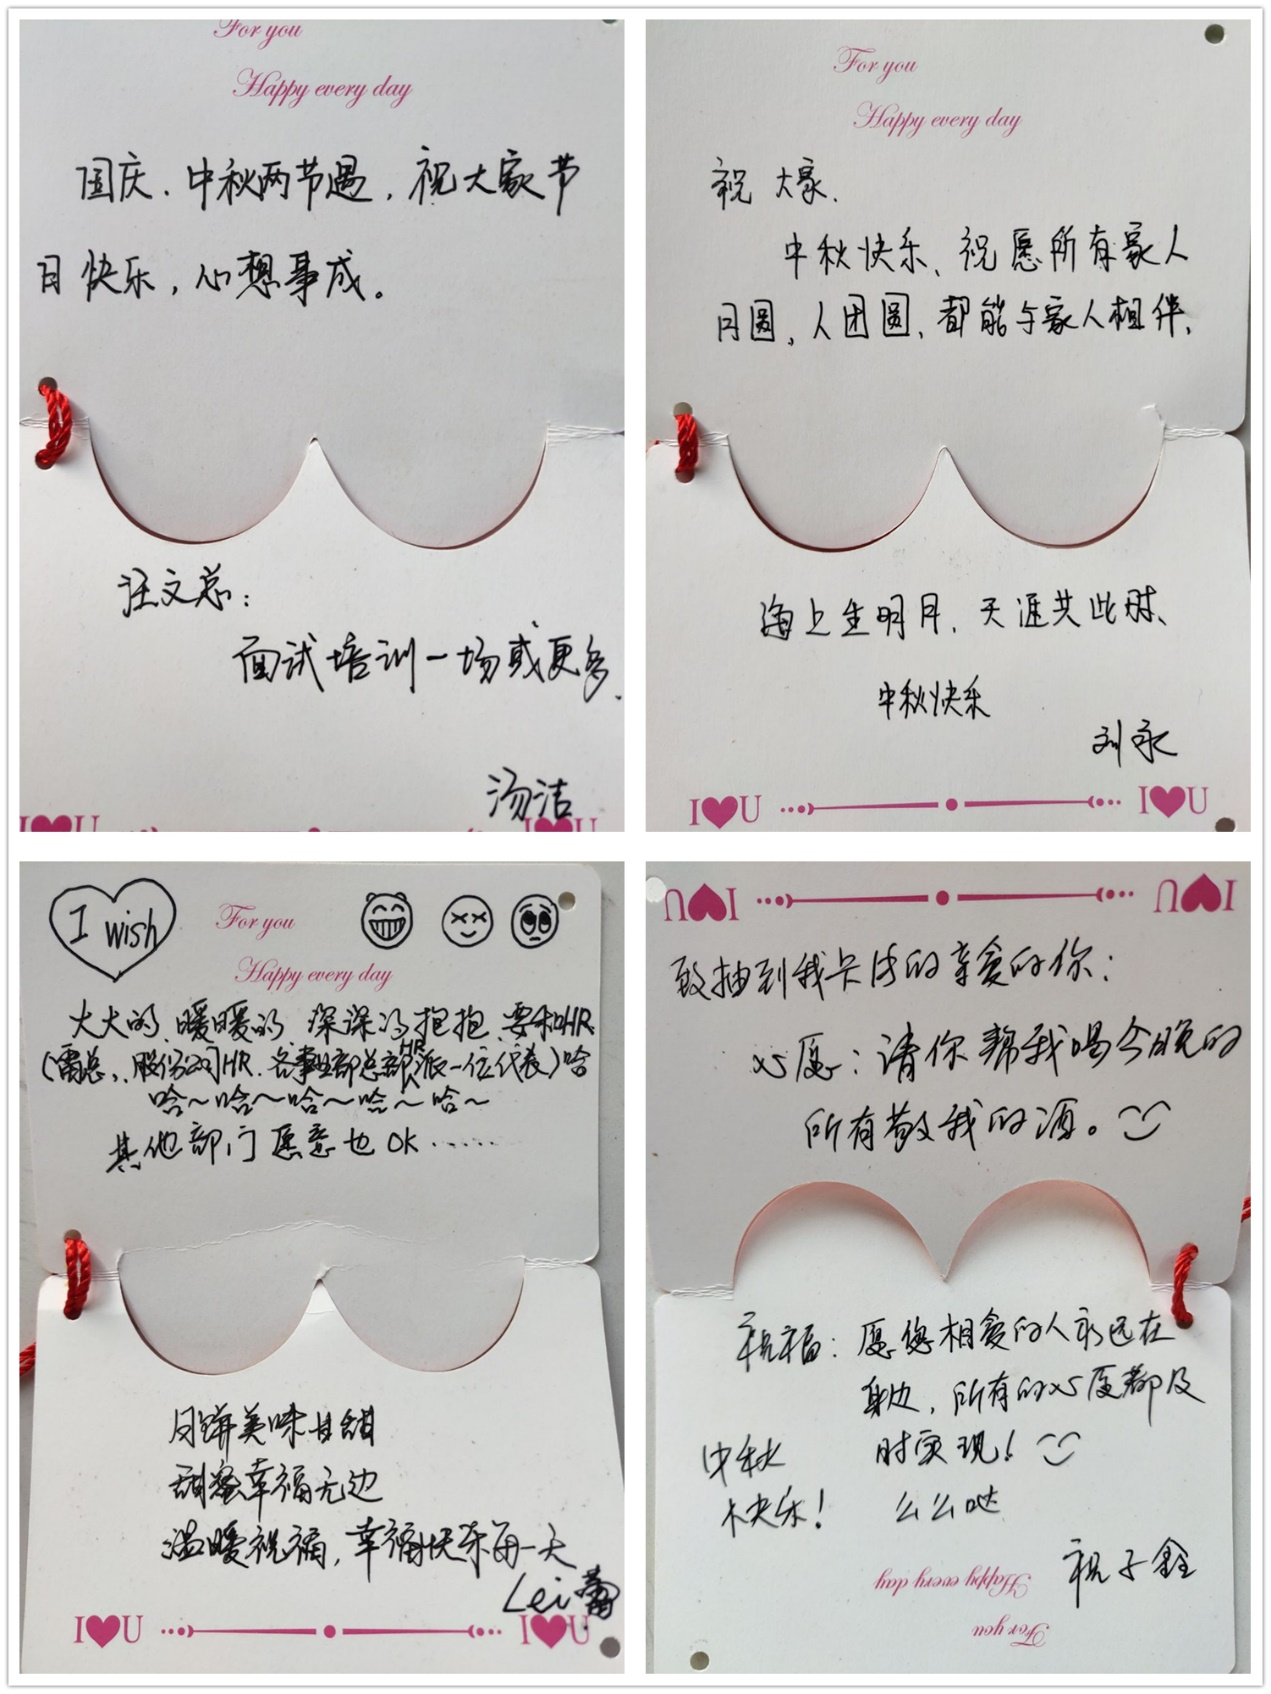 For you
Happy every day
国庆、中秋两节遇,祝大家节
日快乐,心想事成。
汪文总:
面试培训一场或更多.
汤洁
I♥U I♥U
For you
Happy every day
祝大家、
中秋快乐、祝愿所有家人
月圆、人团圆、都能与家人相伴、
海上生明月、天涯共此时、
中秋快乐
刘永
I♥U I♥U
I wish
For you
Happy every day
大大的、暖暖的 深深的抱抱、要和HR
(雷总、股份公司HR、各事业部总部HR派一位代表)哈
哈~哈~哈~哈~哈~
其他部门愿意也OK……
月饼美味甘甜
甜蜜幸福无边
温暖祝福,幸福快乐每一天
Lei蕾
I♥U I♥U
I♥U I♥U
致抽到我卡片的亲爱的你:
心愿:请你帮我喝今晚的
所有敬我的酒。
祝福:愿您相爱的人永远在
身边,所有的心愿都及
时实现!
中秋
快乐!
么么哒
祝子鑫
Happy every day
For you